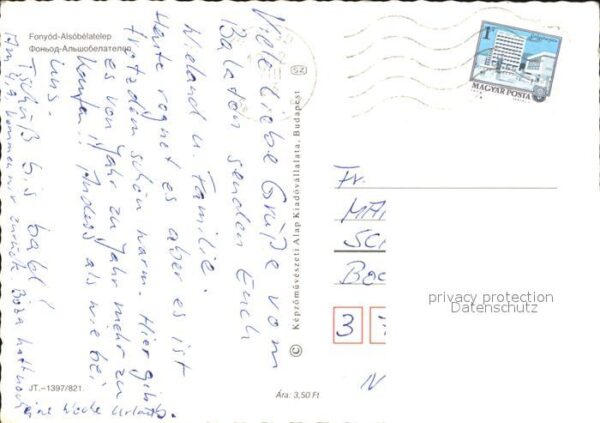 Fonyód-Alsóbélatelep
Фоньод-Альшобелателеп
Viele liebe Grüße vom
Balaton senden Euch
Wieland u. Familie.
Heute regnet es aber es ist
trotzdem schön warm. Hier gibt
es von Jahr zu Jahr mehr zu
kaufen!! Anders als wie bei
uns.
Tschüß bis bald!
kommen wir zurück
eine Woche Urlaub.
JT.–1397/821.
Ára: 3,50 Ft
© Képzőművészeti Alap Kiadóvállalata, Budapest
52
1
MAGYAR POSTA
Fr.
MA
SC
Boc
privacy protection
Datenschutz
3
N